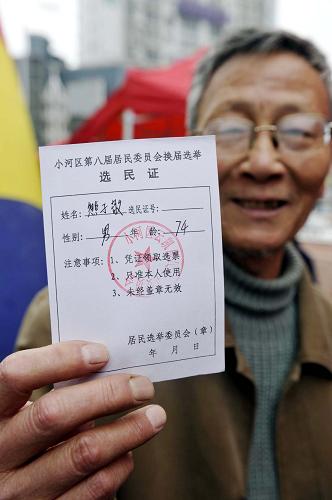 小河区第八届居民委员会换届选举
选民证
姓名：熊 选民证号：
性别：男 年龄：74
注意事项：1、凭证领取选票
2、只准本人使用
3、未经盖章无效
居民选举委员会（章）
年 月 日